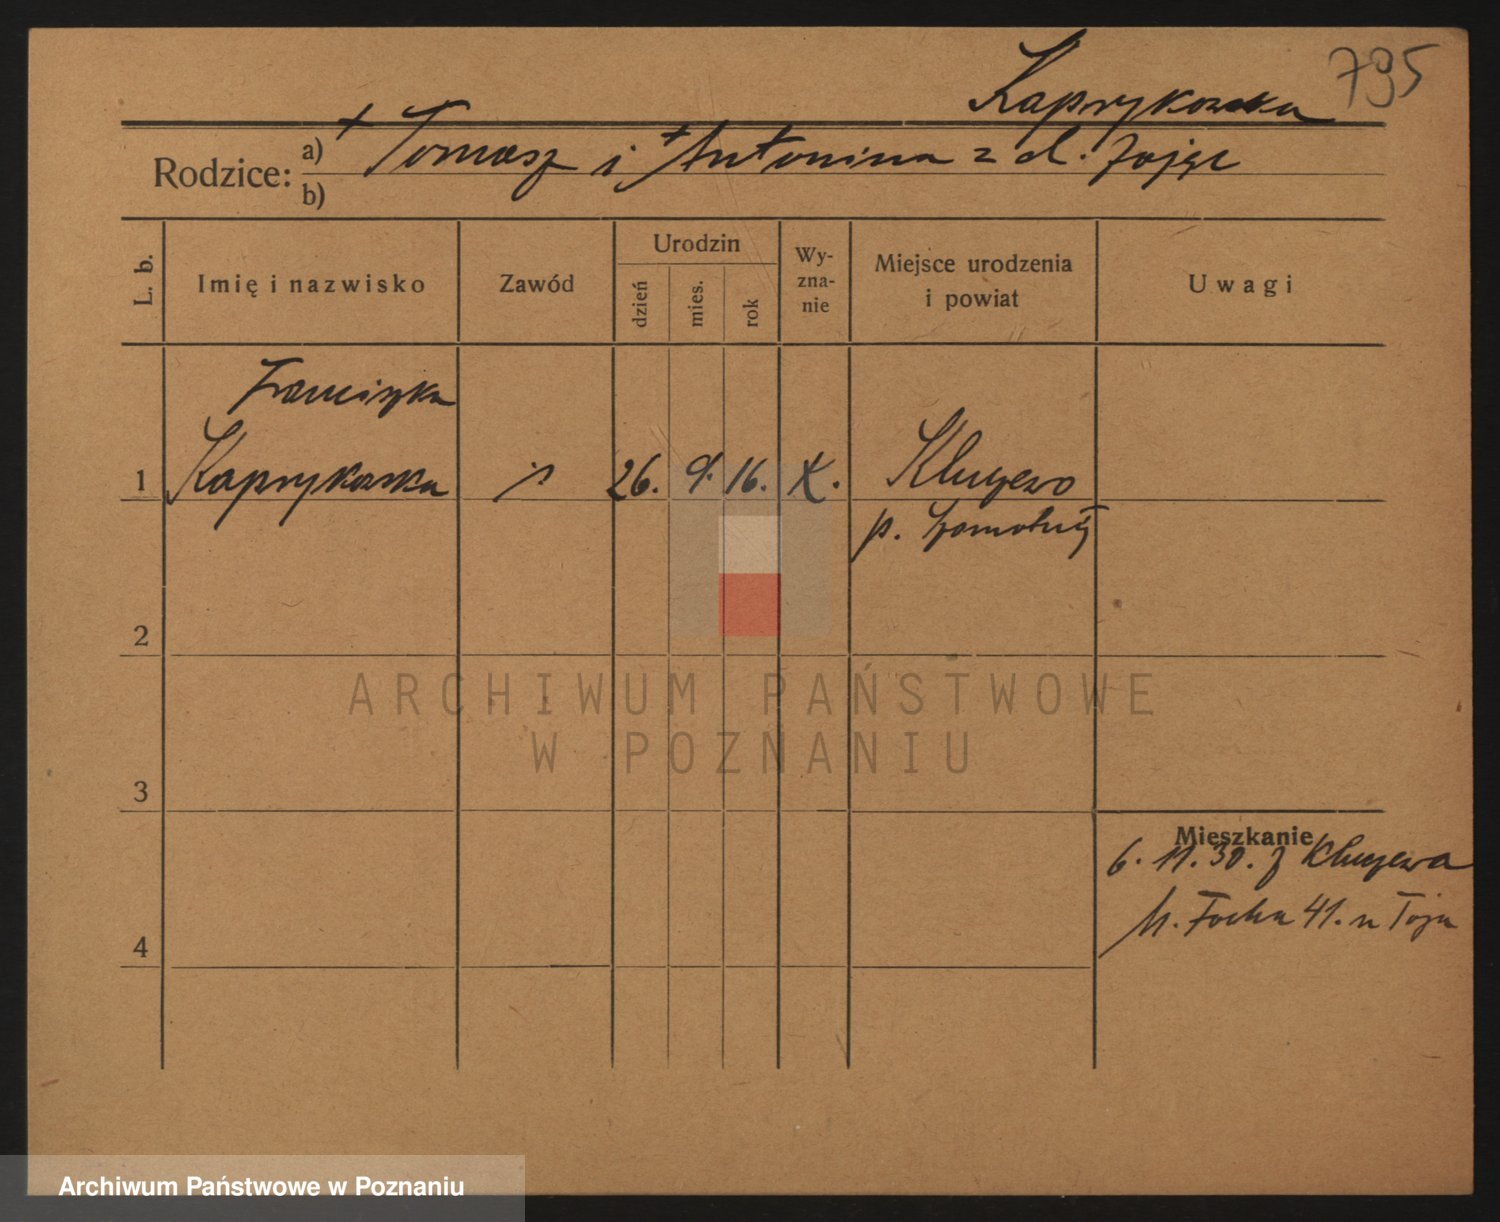 Kaprykowska 795
Rodzice: a) + Tomasz i + Antonina z d. Zając
b)
L. b.
Imię i nazwisko
Zawód
Urodzin
dzień
mies.
rok
Wy-
zna-
nie
Miejsce urodzenia
i powiat
Uwagi
Franciszka
1 Kaprykowska 26. 9. 16. K. Kluczewo
p. Szamotuły
2
3
4
Mieszkanie
6. 11. 30. z Kluczewa
M. Focha 41.
ARCHIWUM PAŃSTWOWE
W POZNANIU
Archiwum Państwowe w Poznaniu